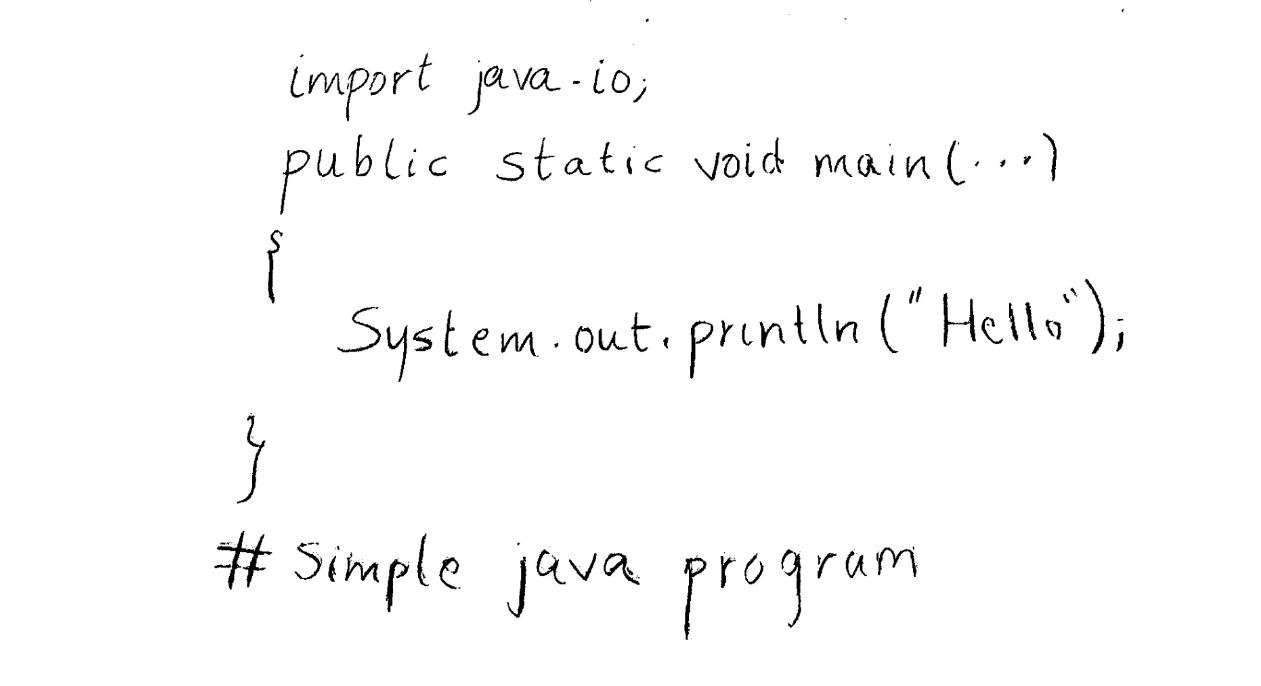 import java.io;
public static void main(...)
{
System.out.println("Hello");
}
# Simple java program